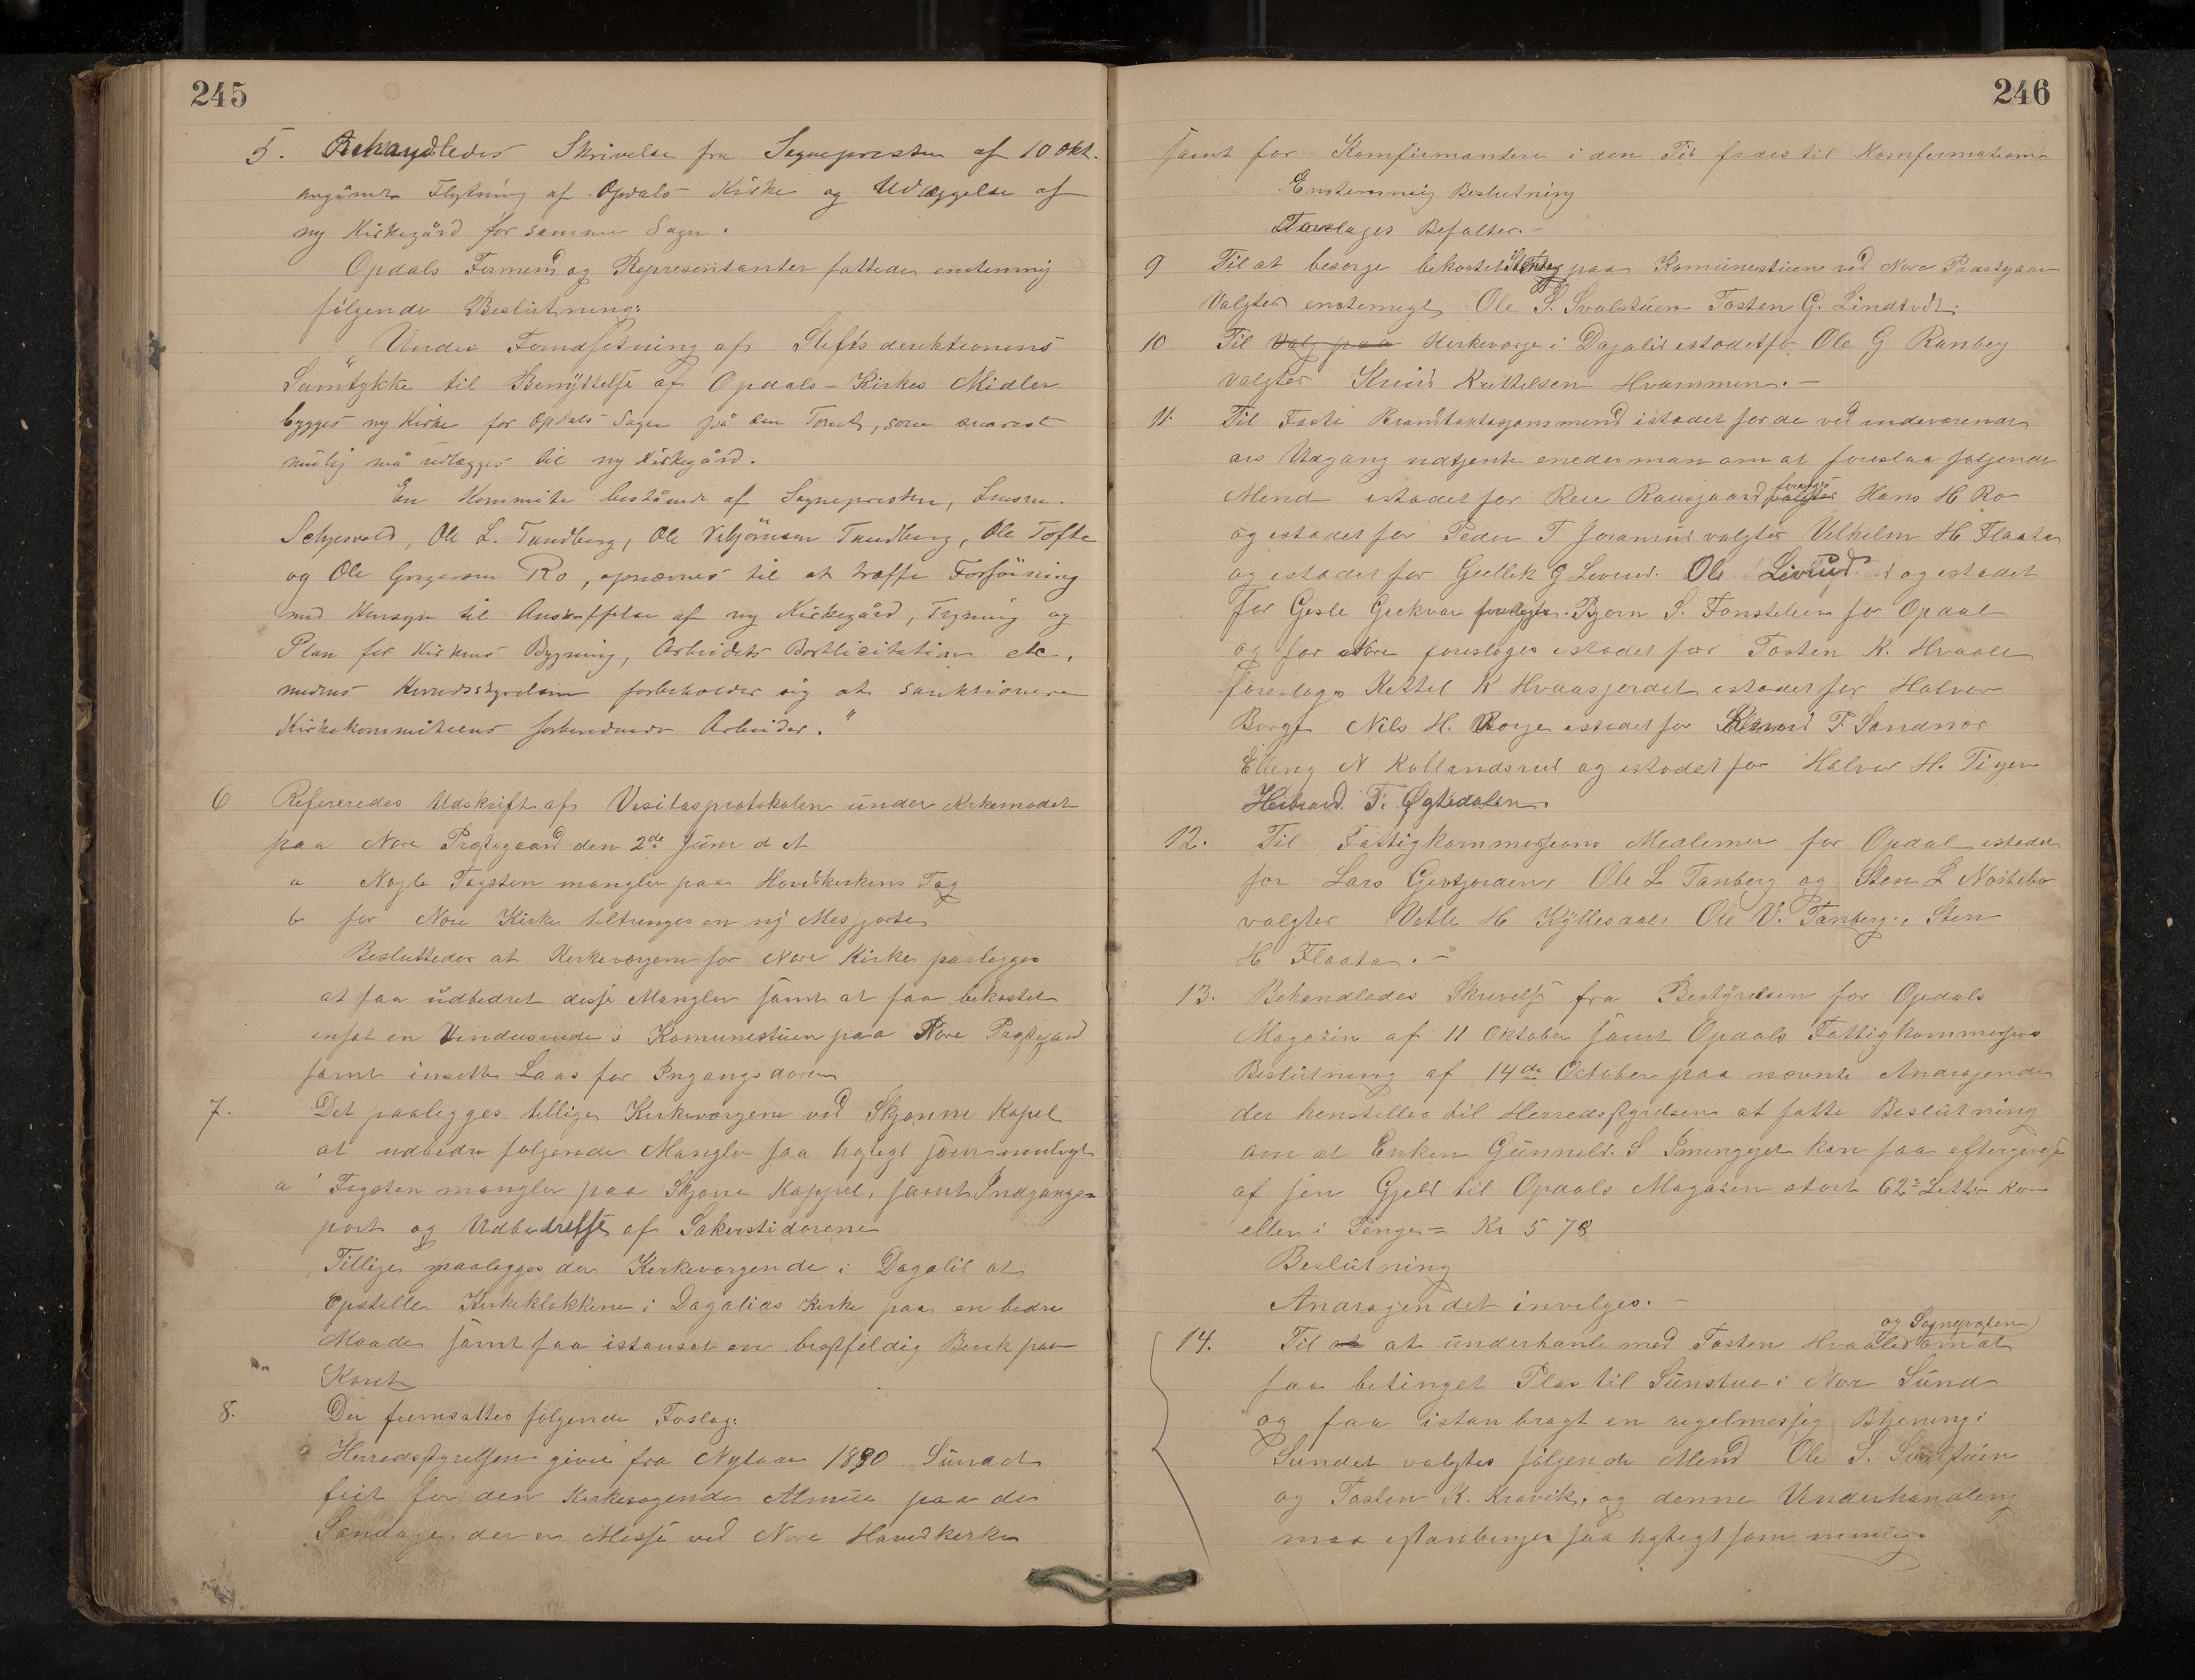 245
5. Behandledes Skrivelse fra Sognepresten af 10 Okt.
angående Flytning af Opdals Kirke og Udlæggelse af
ny Kirkegård for samme Sogn.
Opdals Formend og Representanter fattede enstemmig
følgende Beslutning:
"Under Forudsetning af Stiftsdirektionens
Samtykke til Benyttelse af Opdals-Kirkes Midler
bygges ny Kirke for Opdals Sogn på den Tomt, som snarest
mulig må udlægges til ny Kirkegård.
En Kommite bestående af Sognepresten, Lensm.
Schjesvold, Ole L. Tandberg, Ole Tandberg, Ole Tofte
og Ole Ro, opnævnes til at træffe Forføining
med Hensyn til Anskaffelse af ny Kirkegård, Tegning og
Plan for Kirkens Bygning, Arbeidets Bortlicitation etc.
medens Herredsstyrelsen forbeholder sig at sanktionere
Kirkekommiteens forberedende Arbeider."
6 Refereredes Udskrift af Visitasprotokolen under Kirkemødet
paa Nore Præstegaard den 2de Juni d A
a Nogle Tagsten mangler paa Hovedkirkens Tag
b for Nore Kirke tiltrænges en ny Messjorte
Besluttedes at Kirkevergene for Nore Kirke paalegges
at faa udbedret disse Mangler samt at faa bekostet
insat en Vindusrude i Komunestuen paa Nore Prestegard
samt insette Laas for Ingangsdøren
7. Det paalegges tillige Kirkevergene ved Skjønne Kapel
at udbedre følgende Mangler saa hastigt som muligt
a Tagsten mangler paa Skjøne Kappel, samt Indgangs-
port og Udbedrelse af Sakerstidørene
Tillige paalegges der Kirkevergende i Dagalid at
opstille Kirkeklokkene i Dagalids Kirke paa en bedre
Maade samt faa istansat en brøstfeldig Benk paa
Koret
8. Der fremsattes følgende Forslag:
Herredsstyrelsen giver fra Nytaar 1890 Sundet
frit for den Kirkesøgende Almue paa de
Søndage, der er Messe ved Nore Hovedkirke
246
samt for Komfirmantene i den Tid fredes til Komfermations
Enstemmig Beslutning
Forslages Befalter.-
9 Til at besørge bekostet paa Komunestuene ved Nore Prestgaar
Valgtes enstemigt Ole S. Svalstuen Tosten G. Lindtvedt.
10 Til Valg paa Kirkeverge i Dagalid istedetfor Ole G Ranberg
valgtes Knud Kittelsen Hvammen.-
11. Til Faste Brandtaktasjonsmend istedet for de ved indeværende
ars Udgang udtjente enedes man om at foreslaa følgende
Mend istedet for Reie Raaegaard foreslags valgtes Hans H Ro
og istedet for Peder T Joramrud valgtes Vilhelm H Flaata
og istedet for Gullik G Liverud. Ole Liverud og istedet
for Gisle foreslages Bjørn S. Fønstelien for Opdal
og for Nore foreslages istedet for Tosten K. Hvaale
foreslags Kettil K Hvaasjordet istedet for Halvor
Borge Nils H. Borge istedet for T. Sandnes
Elling N Kallandsrud og istedet for Halvor H. Tigen
Herbrand T. Øgtedalen.
12. Til Fattigkommesjons Medlemer for Opdal istedet
for Lars Gevtjorden, Ole L Tanberg og Sten L Nørstebø
valgtes Vetle H Kyllesdal, Ole V. Tanberg, Sten
H Flaata.-
13. Behandledes Skrivelse fra Bestyrelsen for Opdals
Magasin af 11 Oktober samt Opdals Fattigkommesjons
Beslutning af 14de October paa nevnte Andragende
der henstilles til Herredsstyrelsen at fatte Beslutning
om at Enken Gunnild S Imingejet kan faa eftergivelse
af sin Gjeld til Opdals Magasin stort 62 Litter Korn
eller i Penge = Kr 5 78
Beslutning
Andragendet invilges.-
14. Til at at underhanle med Tosten Hvaale og Sognepresten om at
faa betinget Plas til Sunstue i Nore Sund
og faa istanbragt en regelmessig Btjening i
Sundet valgtes følgende Mend Ole S. Svalstuen
og Tosten K. Kravik, og denne Underhandling
maa saa hastigt som mulig.